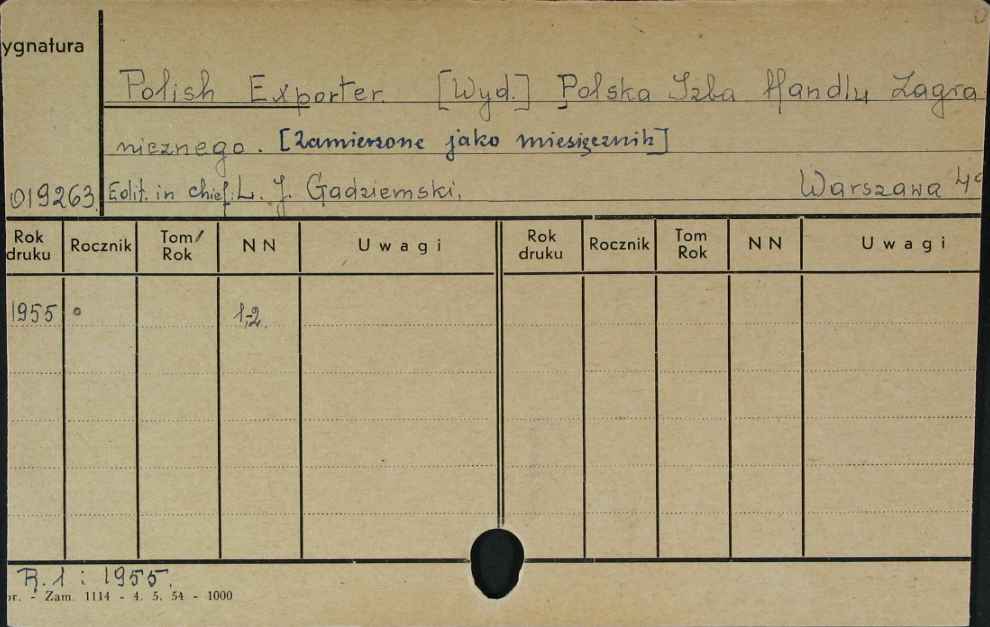 ygnatura
Polish Exporter. [Wyd.] Polska Izba Handlu Zagra
nicznego. [Zamierzone jako miesięcznik]
019263. Edit. in chief: L. J. Gadziemski. Warszawa 4°
Rok druku Rocznik Tom/Rok NN Uwagi Rok druku Rocznik Tom Rok NN Uwagi
1955 ° 1,2.
R. 1 : 1955.
or. - Zam. 1114 - 4. 5. 54 - 1000